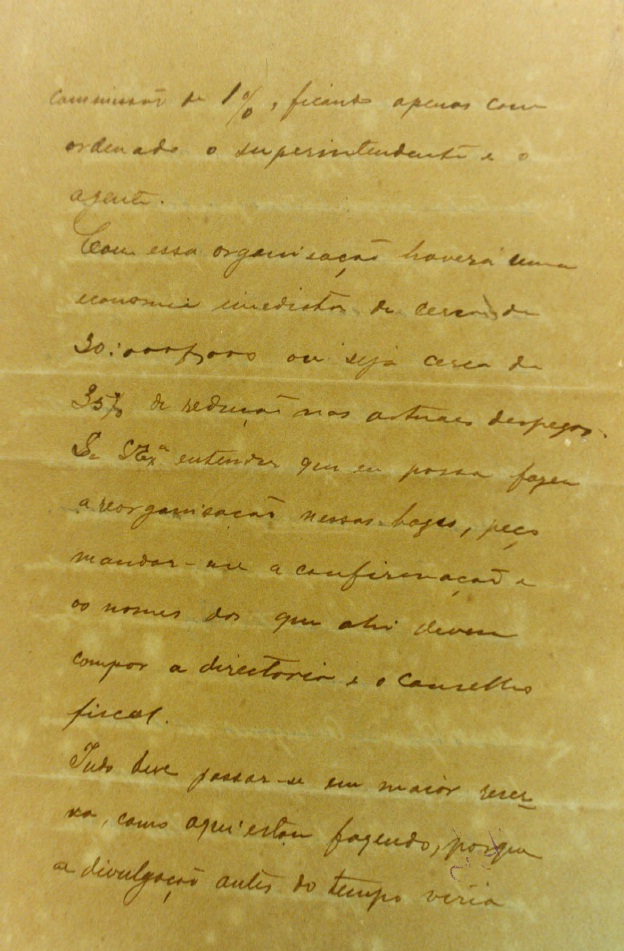 commissão de 1%, ficando apenas com
ordenado o superintendente e o
agente.
Com essa organisação haverá uma
economia immediata de cerca de
30:000$000 ou seja cerca de
35% de redução nas actuaes despezas.
Se V Exª entender que eu possa fazer
a reorganisação nessas bazes, peço
mandar-me a confirmação e
os nomes dos que ahi devem
compor a directoria e o conselho
fiscal.
Tudo deve passar-se em maior reser-
va, como aqui estou fazendo, porque
a divulgação antes do tempo viria